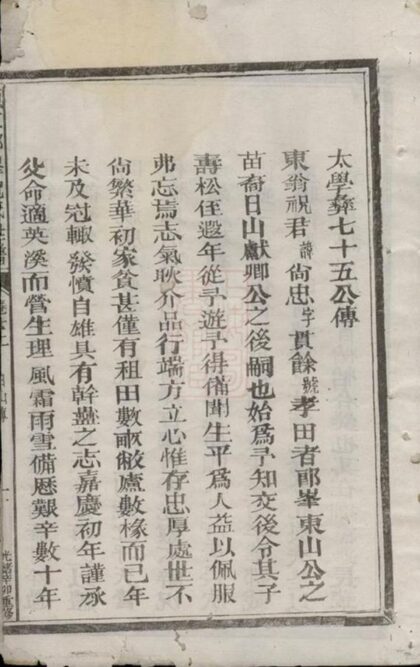 太學彝七十五公傳
東翁祝君諱尚忠字貫餘號孝田者郎峯東山公之
苗裔日山獻卿公之後嗣也始爲予知交後令其子
壽松侄遐年從予遊予得備聞生平爲人益以佩服
弗忘焉志氣耿介品行端方立心惟存忠厚處世不
尙繁華初家貧甚僅有租田數畝敝廬數椽而已年
未及冠輙發憤自雄具有幹蠱之志嘉慶初年謹承
父命適英溪而營生理風霜雨雪備歷艱辛數十年
光緒辛卯重修